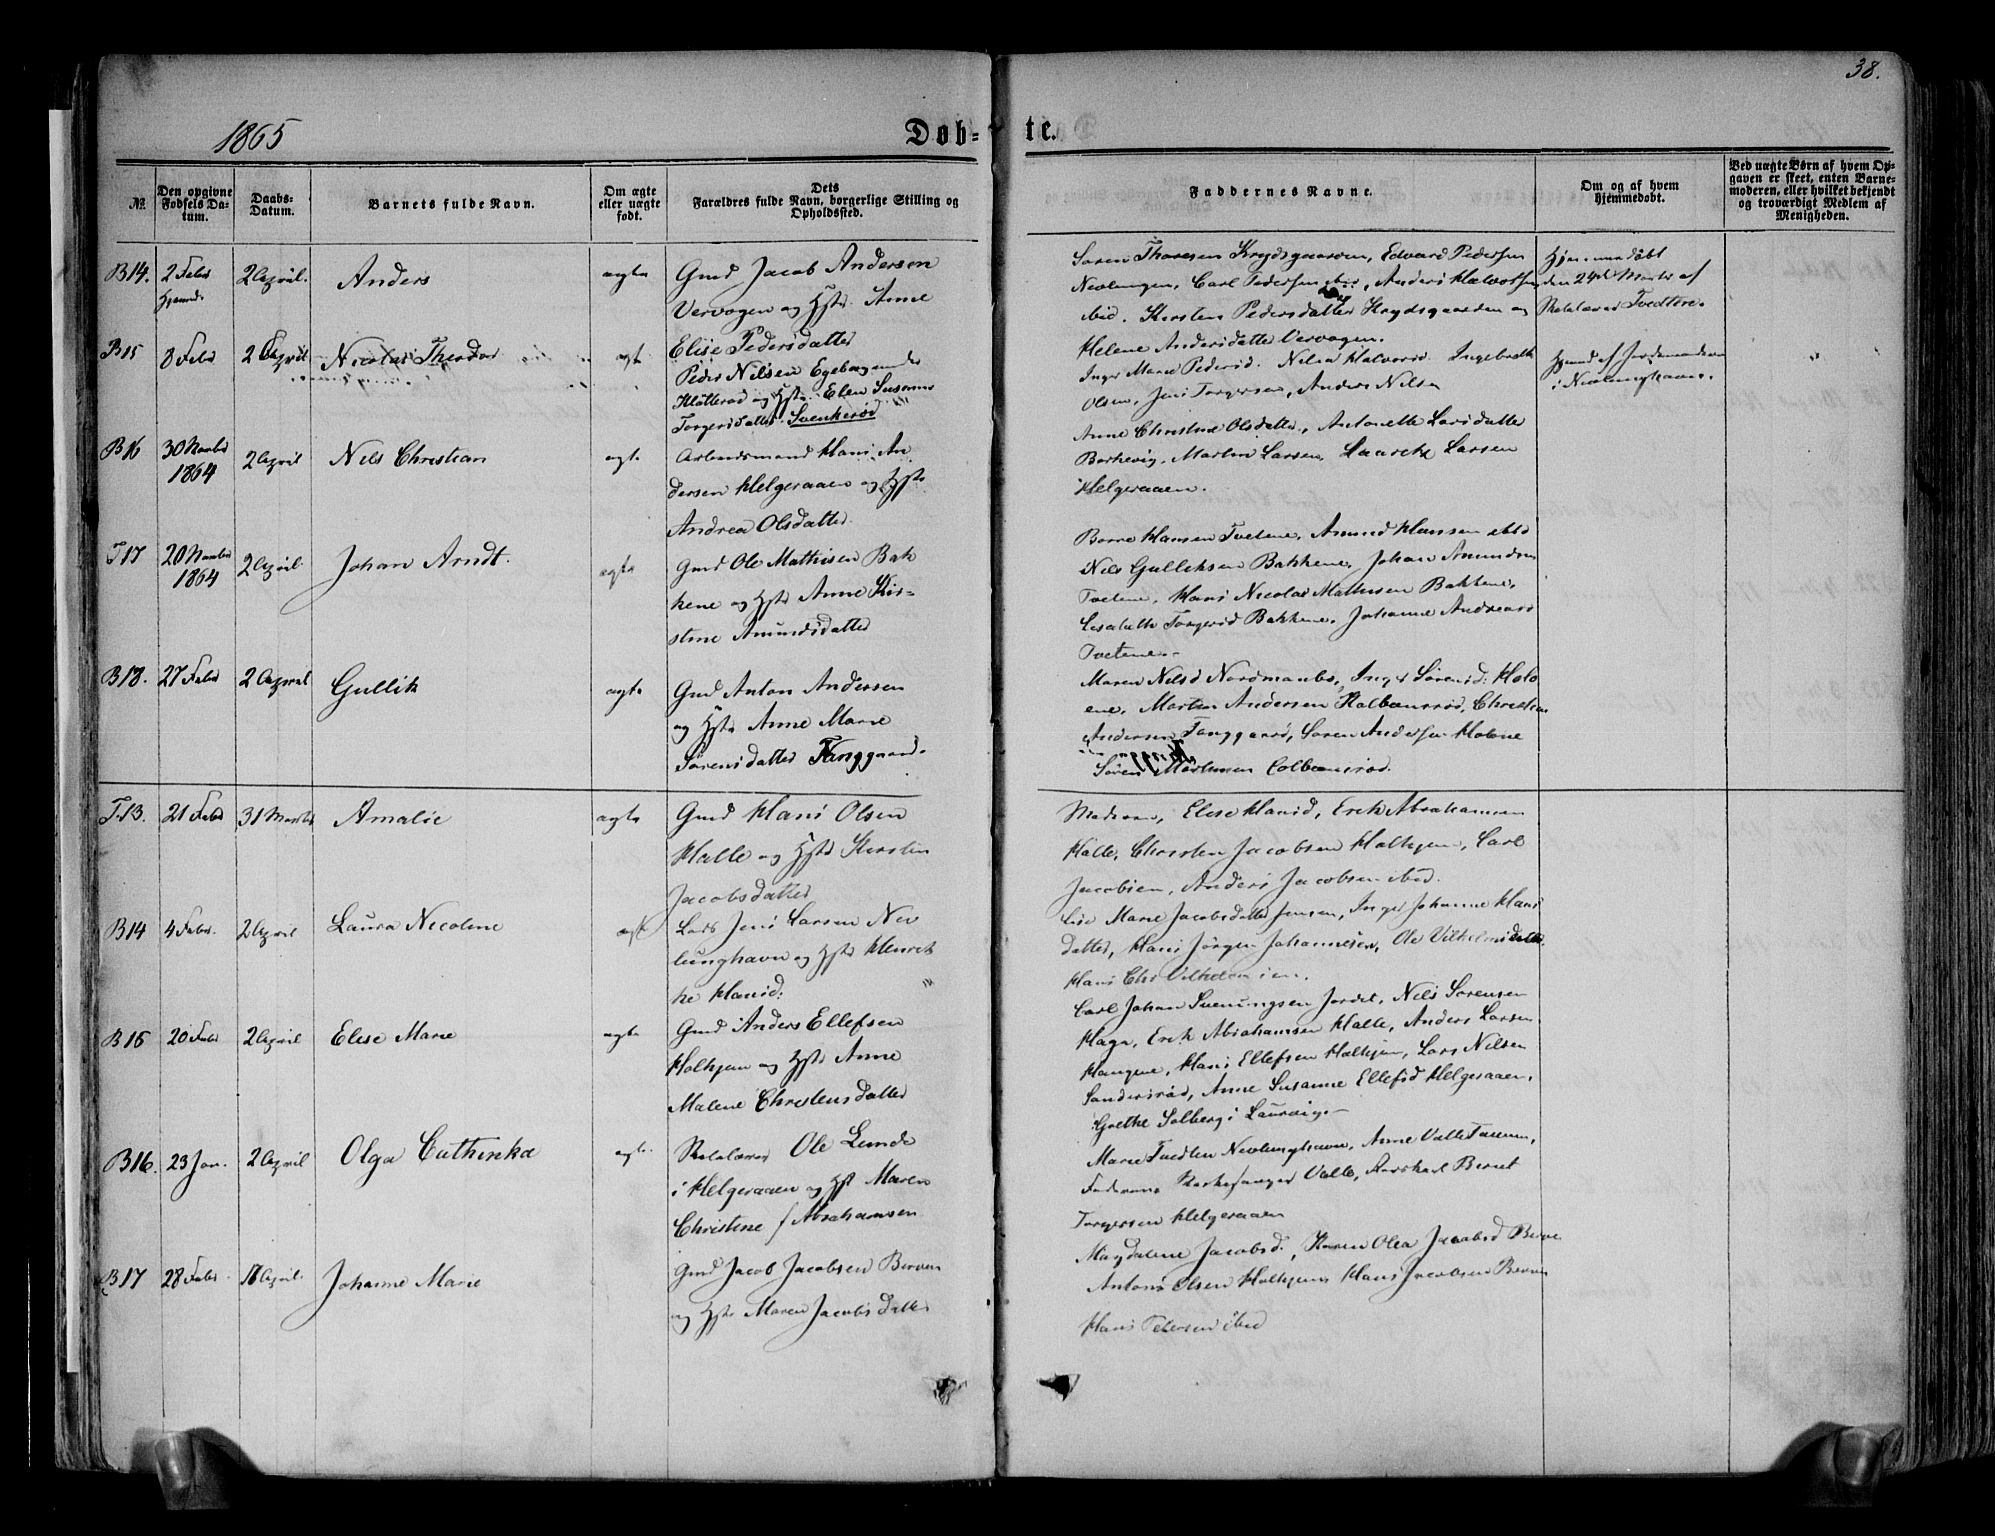 38.
1865
Døb-
te.
No.
Den opgivne Fødsels Datum.
Daabs-Datum.
Barnets fulde Navn.
Om ægte eller uægte født.
Dets Forældres fulde Navn, borgerlige Stilling og Opholdssted.
Faddernes Navne.
Om og af hvem hjemmedøbt.
Ved uægte Børn af hvem Opgaven er skeet, enten Barnemoderen, eller hvilket bekjendt og troværdigt Medlem af Menigheden.
B14. 2 Febr 2 April. Anders ægte Gmd Jacob Andersen
Vervogen og Hstr Anne
Elise Pedersdatter
Søren Thoresen Krydsgaarden, Edvard Pedersen
Nevlungen, Carl Pedersen ibid, Anders Halvorsen
ibid. Kirsten Pedersdatter Krydsgaarden og
Helene Andersdatter Vervogen.
Hjemmedøbt
den 24de Marts af
Skolelærer Tvedten.
B15 8 Febr 2 April Nicolai Theodor ægt
Peder Nilsen
Kløtterød og Hstr. Elen Susanne
Torgersdatter Svenkerød
Inger Marie Pedersd. Nilia Halvorsd. Ingebreth
Olsen, Jens Torgersen, Anders Nilsen
Hjemd af Jordemoderen
i Nevlunghavn.
B16 30 Novbr 1864 2 April Nils Christian ægt. Arbeidsmand Hans An
dersen Helgeraaen og Hstr
Andrea Olsdatter
Anne Christine Olsdatter, Antonette Larsdatter
Barkevig, Martin Larsen, Laurits Larsen
Helgeraaen.
T17 20 Novbr 1864 2 April Johan Arndt. ægte Gmd Ole Mathisen Bak
kene og Hstr Anne Kir-
stine Amundsdatter
Borre Hansen Tvetene, Amund Hansen ibid
Nils Gulliksen Bakkene, Johan Amundsen
Tvetene, Hans Nicolai Mathisen Bakkene,
Lisabeth Torgersd Bakkene, Johanne Andreasd
Tvetene.-
B18. 27 Febr 2 April Gullik ægte Gmd Anton Andersen
og Hstr Anne Marie
Sørensdatter
Maren Nilsd Nordmanbo, Inger Sørensd: Hol
ene, Martin Andersen Kolbensrød, Christian
Andersen, Søren Andersen Holene
Søren Mathisen Colbensrød.
T.13. 21 Febr 31 Marts Amalie ægte Gmd Hans Olsen
Halle og Hstr Kirsten
Jacobsdatter
Moderen, Elise Hansd, Erik Abrahamsen
Halle, Christen Jacobsen Holkjem, Carl
Jacobsen, Anders Jacobsen ibid.
B14 4 Febr. 2 April Laura Nicoline ægt Lods Jens Larsen Nev
lunghavn og Hstr Henrik
ke Hansd:
Lise Marie Jacobsdatter Jensen, Inger Johanne Hans
datter, Hans Jørgen Johannesen, Ole Vilhelmsdatter
Hans Chr Vilhelmsen.
B15 20 Febr 2 April Elise Marie ægte Gmd Anders Ellefsen
Holkjem og Hstr Anne
Malene Christensdatter
Carl Johan Svenungsen Jordet, Nils Sørensen
Haga, Erik Abrahamsen Halle, Anders Larsen
Haugene, Hans Ellefsen Holkjem, Lars Nilsen
Sandersrød, Anne Susanne Ellefsd Helgeraaen,
Grethe Solberg i Laurvig.-
B16. 23 Jan. 2 April Olga Cathinka ægte Skolelærer Ole Lunde
i Helgeraaen og Hst Maren
Christine f Abrahamsen
Marie Tvedten Nevlunghavn, Anne Valle,
Faderen, Kirkesanger Valle, Bernt
Torgersen Helgeraaen
B17 28 Febr. April. Johanne Marie
Gmd Jacob Jacobsen Berven
og Hstr Maren Jacobsdatter
Magdalene Jacobsd., Karen Olea Jacobsd Berve
Anton Olsen Holkjem, Hans Jacobsen Berven
Hans Petersen ibid